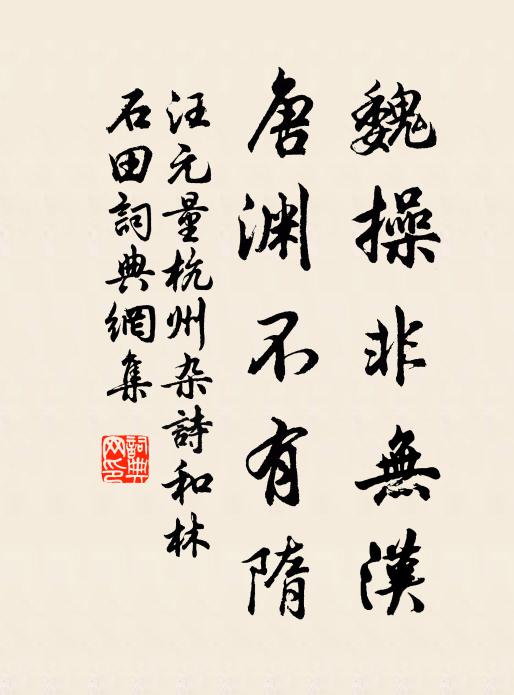 魏操非無漢
唐渊不有隋
汪元量杭州杂詩和林
石田詞典網集
詞典网印